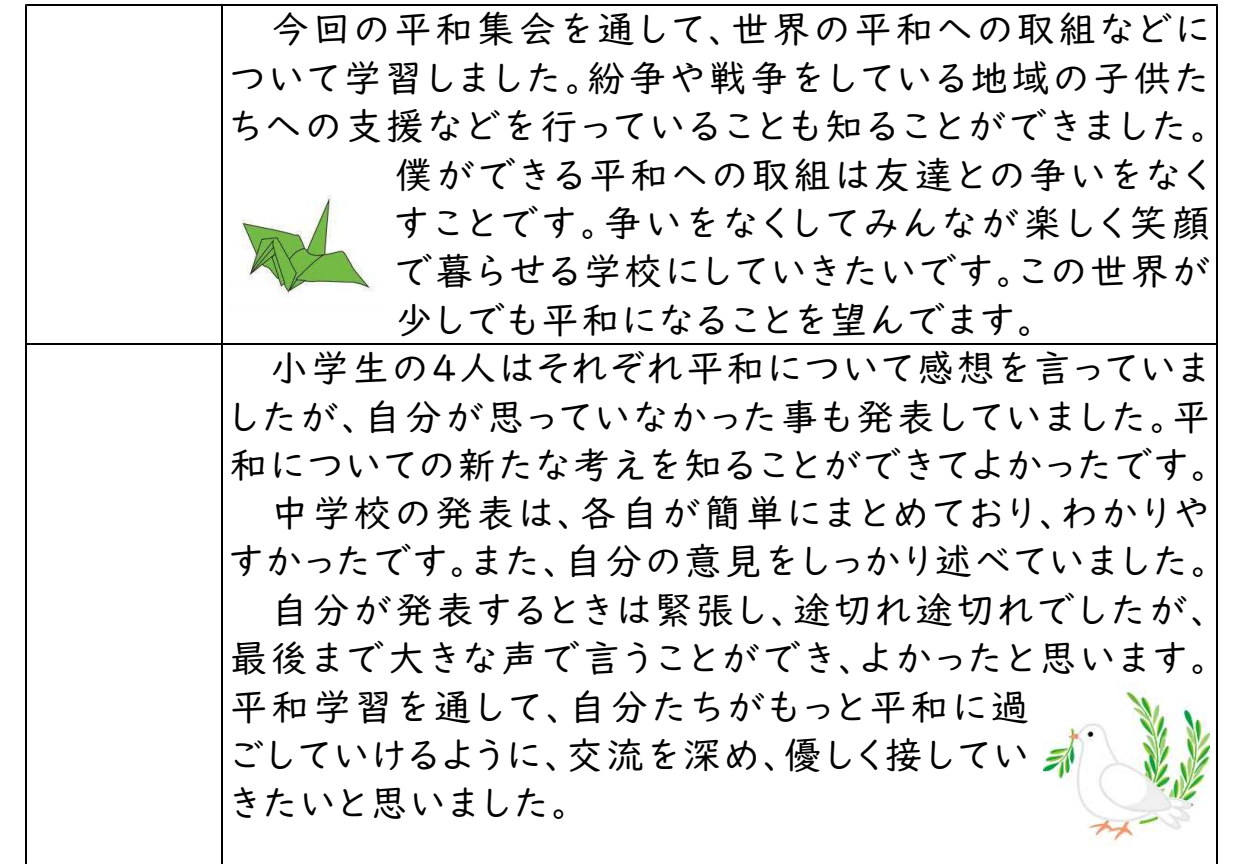 今回の平和集会を通して、世界の平和への取組などに
ついて学習しました。紛争や戦争をしている地域の子供た
ちへの支援などを行っていることも知ることができました。
僕ができる平和への取組は友達との争いをなく
すことです。争いをなくしてみんなが楽しく笑顔
で暮らせる学校にしていきたいです。この世界が
少しでも平和になることを望んでます。
小学生の4人はそれぞれ平和について感想を言っていま
したが、自分が思っていなかった事も発表していました。平
和についての新たな考えを知ることができてよかったです。
中学校の発表は、各自が簡単にまとめており、わかりや
すかったです。また、自分の意見をしっかり述べていました。
自分が発表するときは緊張し、途切れ途切れでしたが、
最後まで大きな声で言うことができ、よかったと思います。
平和学習を通して、自分たちがもっと平和に過
ごしていけるように、交流を深め、優しく接してい
きたいと思いました。